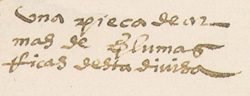 una pieca de ar
mas de plumas
Ricas desta divisa